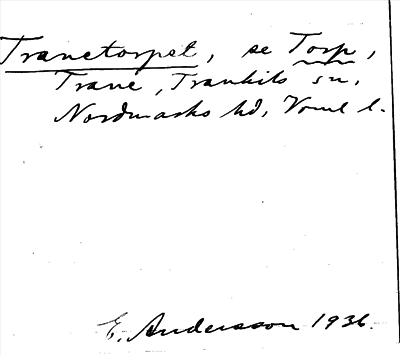 Tranetorpet, se Torp,
Trane, Trankils sn,
Nordmarks hd, Vrml l.
E. Andersson 1936.